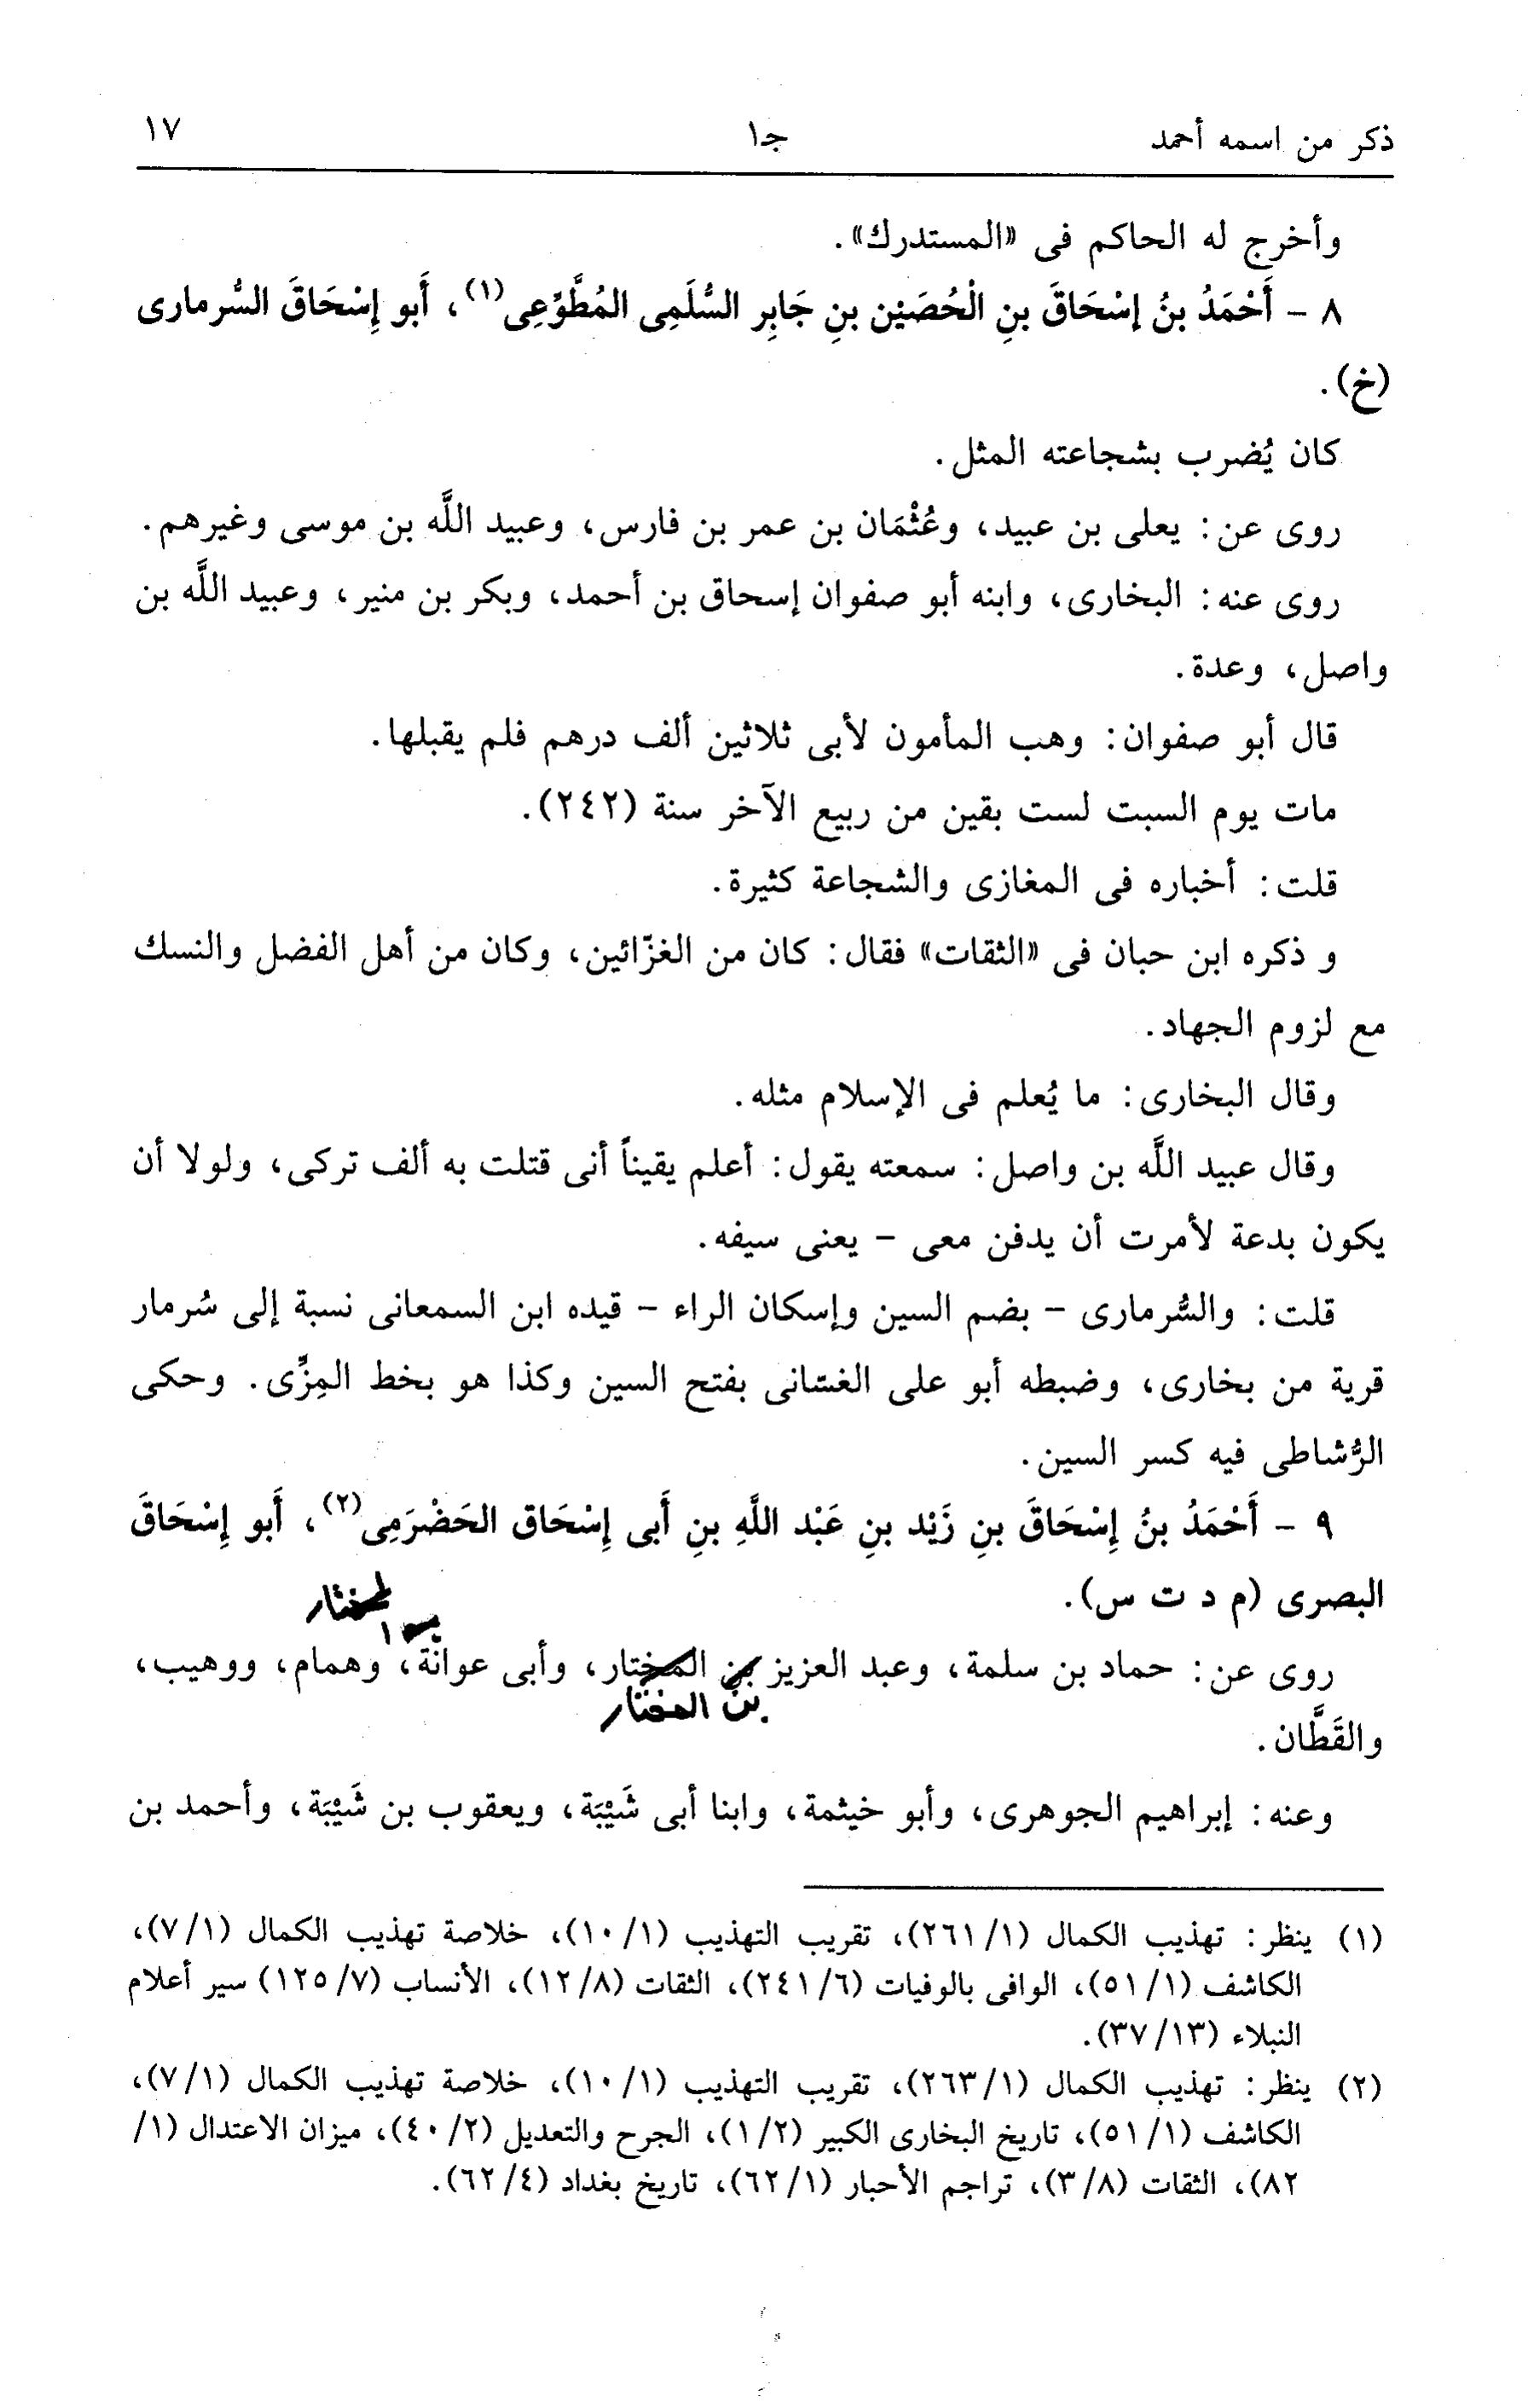 ذكر من اسمه أحمد جـ١ ١٧
وأخرج له الحاكم فى «المستدرك».
٨ - أَحْمَدُ بنُ إسْحَاقَ بنِ الْحُصَيْن بنِ جَابِر السُّلَمِى المُطَّوِّعِى(١)، أَبو إِسْحَاقَ السُّرمارى
(خ).
كان يُضرب بشجاعته المثل.
روى عن: يعلى بن عبيد، وعُثْمَان بن عمر بن فارس، وعبيد اللَّه بن موسى وغيرهم.
روى عنه: البخارى، وابنه أبو صفوان إسحاق بن أحمد، وبكر بن منير، وعبيد اللَّه بن
واصل، وعدة.
قال أبو صفوان: وهب المأمون لأبى ثلاثين ألف درهم فلم يقبلها.
مات يوم السبت لست بقين من ربيع الآخر سنة (٢٤٢).
قلت: أخباره فى المغازى والشجاعة كثيرة.
و ذكره ابن حبان فى «الثقات» فقال: كان من الغزّائين، وكان من أهل الفضل والنسك
مع لزوم الجهاد.
وقال البخارى: ما يُعلم فى الإسلام مثله.
وقال عبيد اللَّه بن واصل: سمعته يقول: أعلم يقيناً أنى قتلت به ألف تركى، ولولا أن
يكون بدعة لأمرت أن يدفن معى - يعنى سيفه.
قلت: والسُّرمارى - بضم السين وإسكان الراء - قيده ابن السمعانى نسبة إلى سُرمار
قرية من بخارى، وضبطه أبو على الغسّانى بفتح السين وكذا هو بخط المِزِّى. وحكى
الرُّشاطى فيه كسر السين.
٩ - أَحْمَدُ بنُ إِسْحَاقَ بنِ زَيْد بنِ عَبْد اللَّهِ بنِ أَبى إِسْحَاق الحَضْرَمِى(٢)، أَبو إِسْحَاقَ
البصرى (م د ت س).
روى عن: حماد بن سلمة، وعبد العزيز بن المختار، وأبى عوانة، وهمام، ووهيب،
بن المختار
والقَطَّان.
وعنه: إبراهيم الجوهرى، وأبو خيثمة، وابنا أبى شَيْبَة، ويعقوب بن شَيْبَة، وأحمد بن
(١) ينظر: تهذيب الكمال (٢٦١/١)، تقريب التهذيب (١٠/١)، خلاصة تهذيب الكمال (٧/١)،
الكاشف (٥١/١)، الوافى بالوفيات (٢٤١/٦)، الثقات (١٢/٨)، الأنساب (١٢٥/٧) سير أعلام
النبلاء (٣٧/١٣).
(٢) ينظر: تهذيب الكمال (٢٦٣/١)، تقريب التهذيب (١٠/١)، خلاصة تهذيب الكمال (٧/١)،
الكاشف (٥١/١)، تاريخ البخارى الكبير (١/٢)، الجرح والتعديل (٤٠/٢)، ميزان الاعتدال (١/
٨٢)، الثقات (٣/٨)، تراجم الأحبار (٦٢/١)، تاريخ بغداد (٦٢/٤).